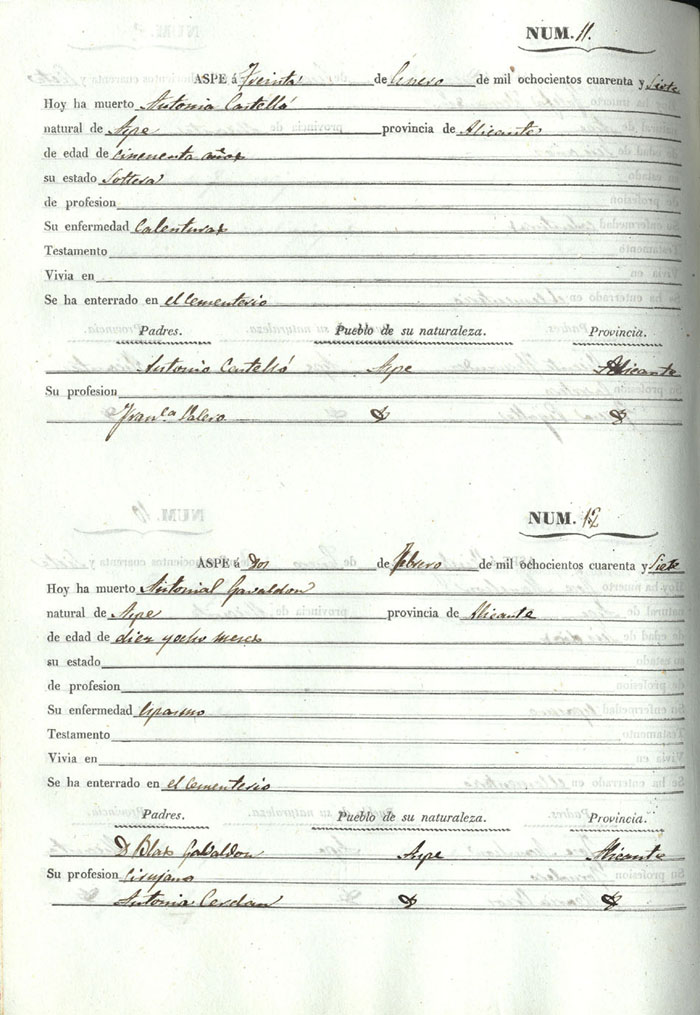 NUM. 11.
ASPE á Treinta de Enero de mil ochocientos cuarenta y Siete
Hoy ha muerto Antonia Castelló
natural de Aspe provincia de Alicante
de edad de cincuenta años
su estado Soltera
de profesion
Su enfermedad Calenturas
Testamento
Vivia en
Se ha enterrado en el Cementerio
Padres. Pueblo de su naturaleza. Provincia.
Antonio Castelló Aspe Alicante
Su profesion
Fran.ca Valero
NUM. 12
ASPE á Dos de Febrero de mil ochocientos cuarenta y Siete
Hoy ha muerto Gavaldon
natural de Aspe provincia de Alicante
de edad de diez y ocho meses
su estado
de profesion
Su enfermedad Espasmo
Testamento
Vivia en
Se ha enterrado en el Cementerio
Padres. Pueblo de su naturaleza. Provincia.
D Blas Gavaldon Aspe Alicante
Su profesion Cirujano
Antonia Cerdan